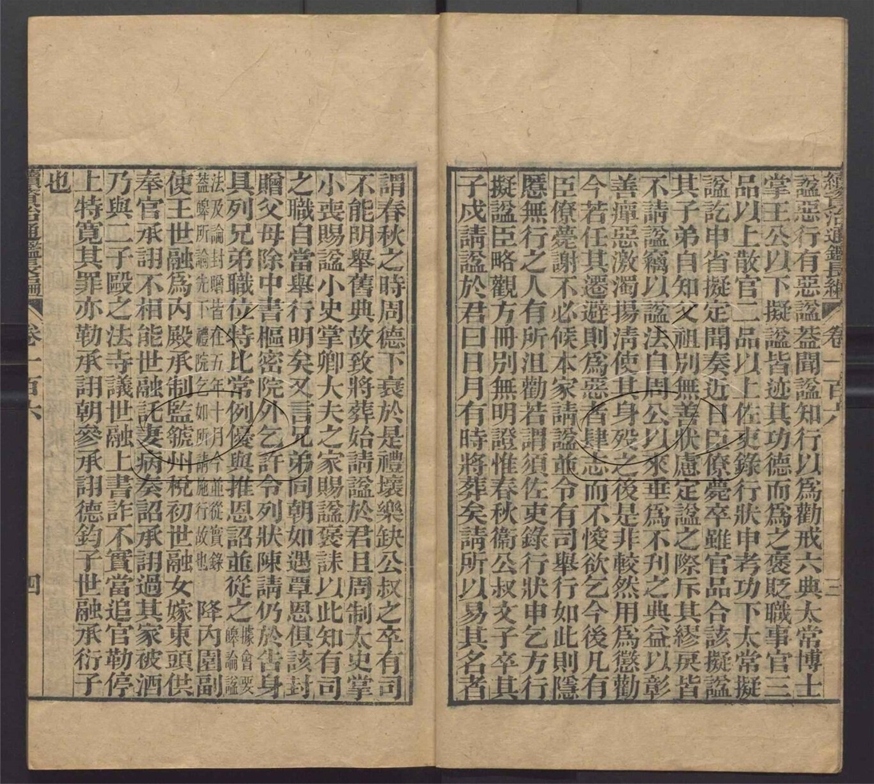 續資治通鑑長編 卷一百六 三
諡惡行有惡諡葢聞諡知行以爲勸戒六典太常博士
掌王公以下擬諡皆迹其功德而爲之褒貶職事官三
品以上散官二品以上佐吏錄行狀申考功下太常擬
諡訖申省擬定聞奏近日臣僚薨卒雖官品合該擬諡
其子弟自知父祖別無善狀慮定諡之際斥其繆戾皆
不請諡竊以諡法自周公以來垂爲不刋之典益以彰
善癉惡激濁揚淸使其身歿之後是非較然用爲懲勸
今若任其遷避則爲惡者肆志而不悛欲乞今後凡有
臣僚薨謝不必候本家請諡並令有司舉行如此則隱
慝無行之人有所沮勸若謂須佐吏錄行狀申乞方行
擬諡臣略觀方冊別無明證惟春秋衞公叔文子卒其
子戍請諡於君曰日月有時將葬矣請所以易其名者
謂春秋之時周德下衰於是禮壞樂缺公叔之卒有司
不能明舉舊典故致將葬始請諡於君且周制太史掌
小喪賜諡小史掌卿大夫之家賜諡褒誄以此知有司
之職自當舉行明矣又言兄弟同朝如遇覃恩俱該封
贈父母除中書樞密院外乞許令列狀陳請仍於告身
具列兄弟職位特比常例優與推恩詔並從之據會要皥論諡
法及論封贈皆在五年十月今並從實錄葢皥所論先下禮院乞如所請施行故也 降內園副
使王世融爲內殿承制監虢州稅初世融女嫁東頭供
奉官承詡不相能世融託妻病奏詔承詡過其家被酒
乃與二子毆之法寺議世融上書詐不實當追官勒停
上特寬其罪亦勒承詡朝參承詡德鈞子世融承衍子
也
續資治通鑑長編 卷一百六 四